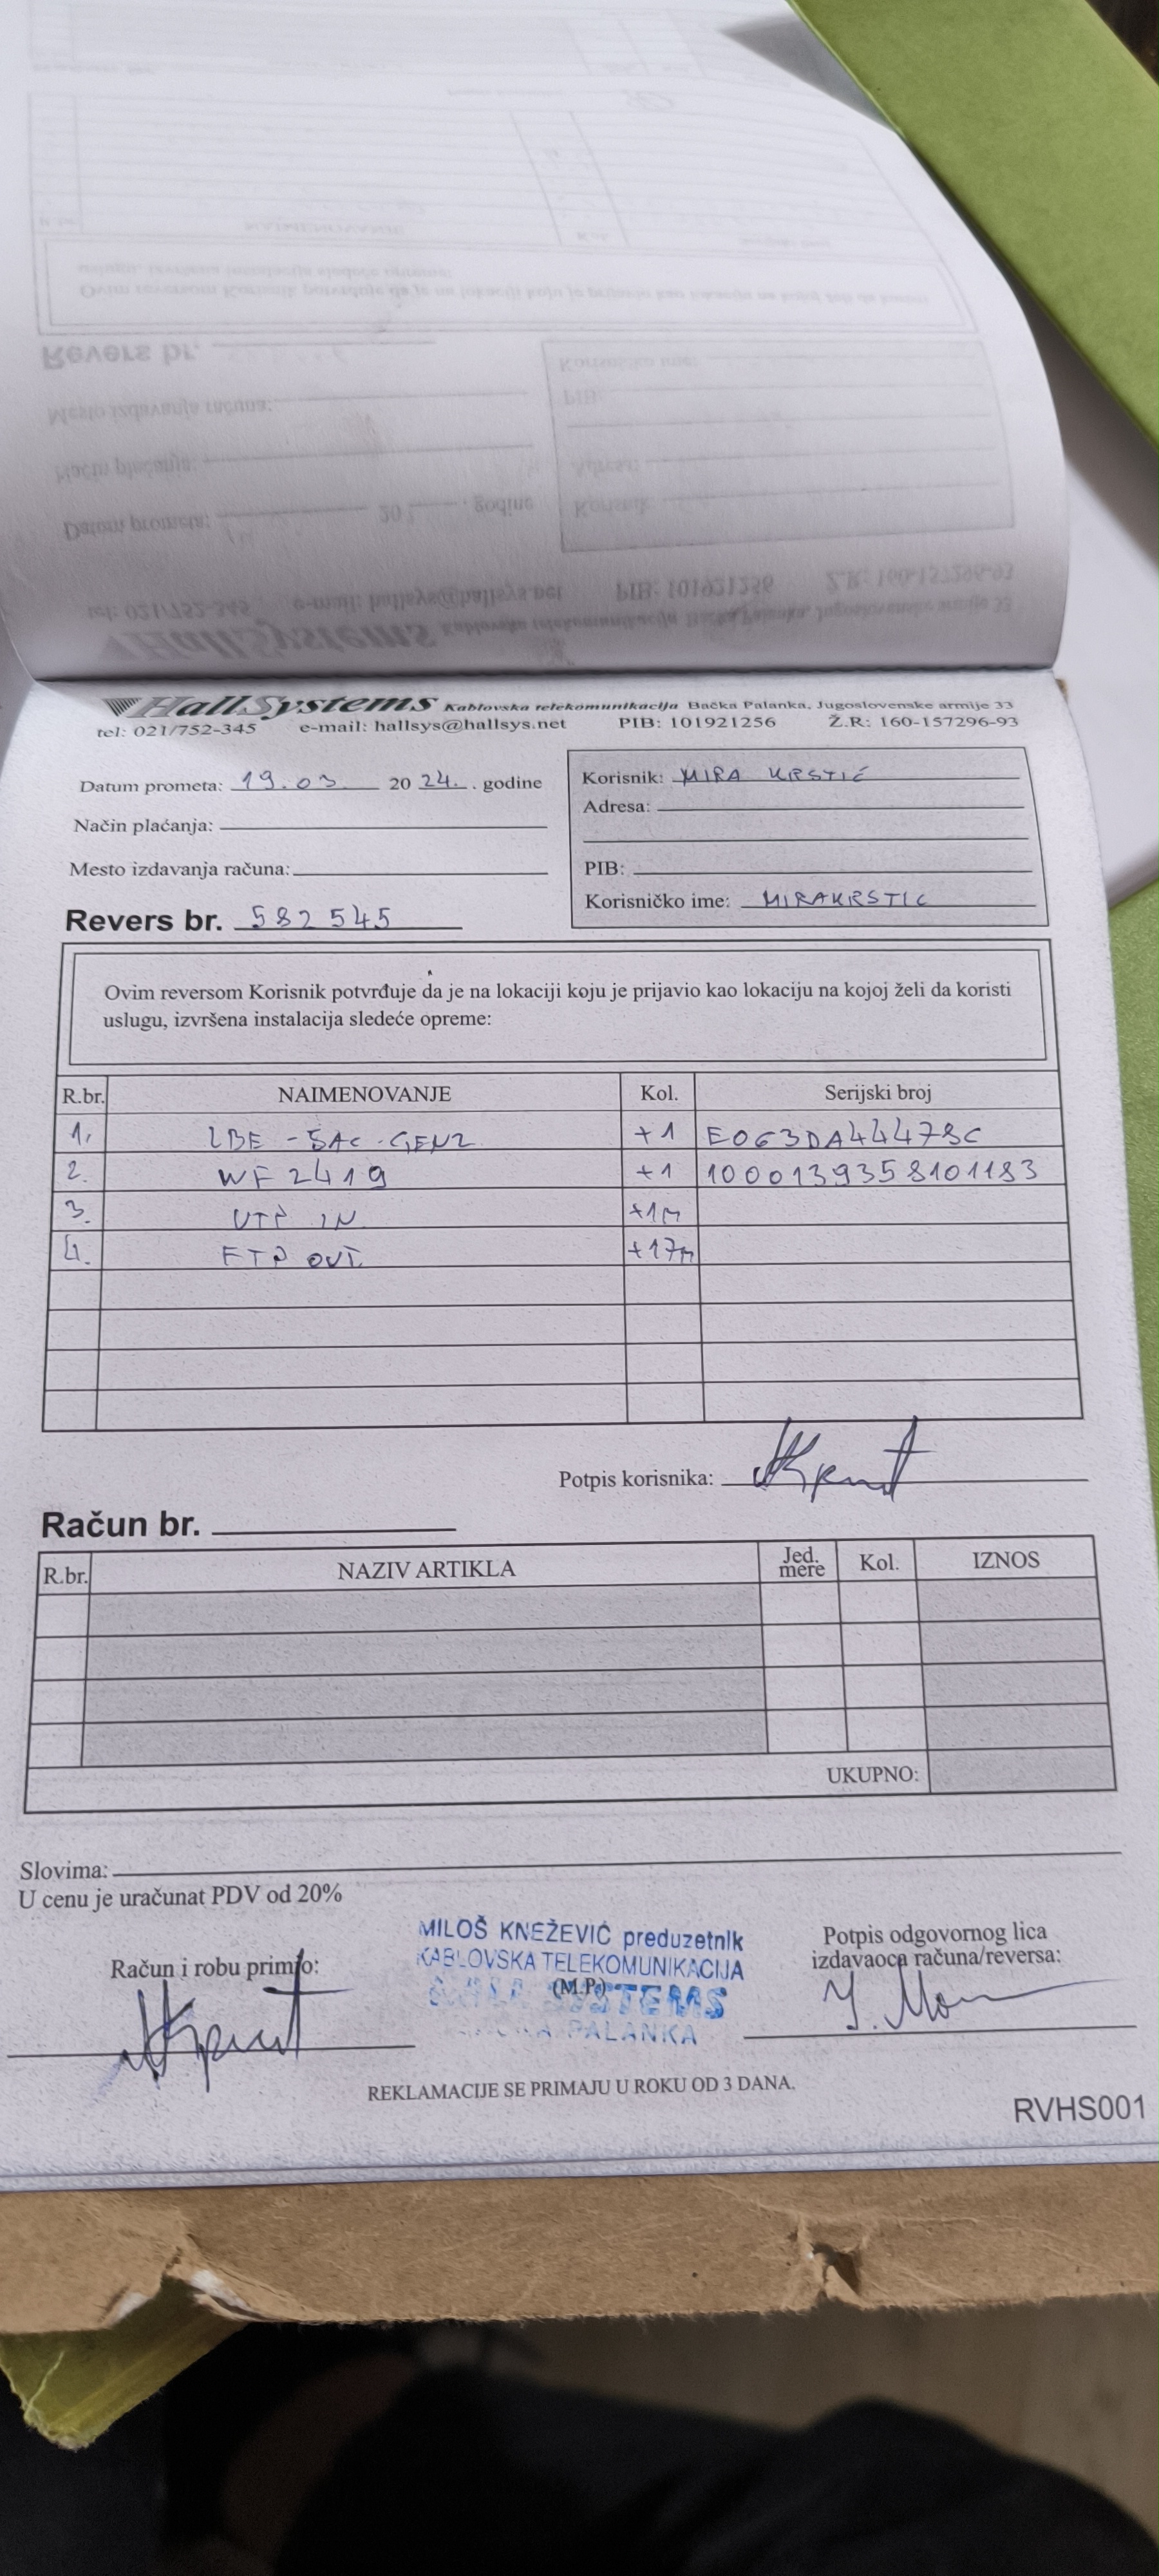 HallSystems Kablovska telekomunikacija Bačka Palanka, Jugoslovenske armije 33
tel: 021/752-345 e-mail: hallsys@hallsys.net PIB: 101921256 Ž.R: 160-157296-93
Datum prometa: 19.03. 20 24. . godine
Način plaćanja:
Mesto izdavanja računa:
Revers br. 582545
Korisnik: MIRA KRSTIĆ
Adresa:
PIB:
Korisničko ime: MIRAKRSTIC
Ovim reversom Korisnik potvrđuje da je na lokaciji koju je prijavio kao lokaciju na kojoj želi da koristi
uslugu, izvršena instalacija sledeće opreme:
R.br. NAIMENOVANJE Kol. Serijski broj
1. LBE-5AC-GEN2 +1 E063DA44478C
2. WF2419 +1 1000139358101183
3. UTP IN +1m
4. FTP OUT +17m
Potpis korisnika:
Račun br.
R.br. NAZIV ARTIKLA Jed. mere Kol. IZNOS
UKUPNO:
Slovima:
U cenu je uračunat PDV od 20%
Račun i robu primio:
MILOŠ KNEŽEVIĆ preduzetnik
KABLOVSKA TELEKOMUNIKACIJA
(M.P.)
SYSTEMS
PALANKA
Potpis odgovornog lica
izdavaoca računa/reversa:
REKLAMACIJE SE PRIMAJU U ROKU OD 3 DANA.
RVHS001